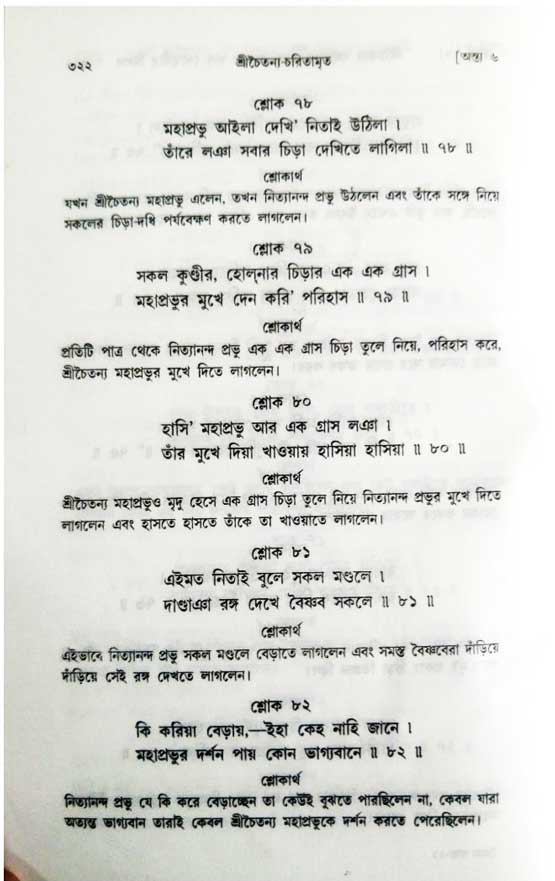 ৩২২
শ্রীচৈতন্য-চরিতামৃত
[অন্ত্য ৬
শ্লোক ৭৮
মহাপ্রভু আইলা দেখি' নিতাই উঠিলা ।
তাঁরে লঞা সবার চিড়া দেখিতে লাগিলা ॥ ৭৮ ॥
শ্লোকার্থ
যখন শ্রীচৈতন্য মহাপ্রভু এলেন, তখন নিত্যানন্দ প্রভু উঠলেন এবং তাঁকে সঙ্গে নিয়ে
সকলের চিড়া-দধি পর্যবেক্ষণ করতে লাগলেন।
শ্লোক ৭৯
সকল কুণ্ডীর, হোল্‌নার চিড়ার এক এক গ্রাস ।
মহাপ্রভুর মুখে দেন করি' পরিহাস ॥ ৭৯ ॥
শ্লোকার্থ
প্রতিটি পাত্র থেকে নিত্যানন্দ প্রভু এক এক গ্রাস চিড়া তুলে নিয়ে, পরিহাস করে,
শ্রীচৈতন্য মহাপ্রভুর মুখে দিতে লাগলেন।
শ্লোক ৮০
হাসি' মহাপ্রভু আর এক গ্রাস লঞা ।
তাঁর মুখে দিয়া খাওয়ায় হাসিয়া হাসিয়া ॥ ৮০ ॥
শ্লোকার্থ
শ্রীচৈতন্য মহাপ্রভুও মৃদু হেসে এক গ্রাস চিড়া তুলে নিয়ে নিত্যানন্দ প্রভুর মুখে দিতে
লাগলেন এবং হাসতে হাসতে তাঁকে তা খাওয়াতে লাগলেন।
শ্লোক ৮১
এইমত নিতাই বুলে সকল মণ্ডলে ।
দাণ্ডাঞা রঙ্গ দেখে বৈষ্ণব সকলে ॥ ৮১ ॥
শ্লোকার্থ
এইভাবে নিত্যানন্দ প্রভু সকল মণ্ডলে বেড়াতে লাগলেন এবং সমস্ত বৈষ্ণবেরা দাঁড়িয়ে
দাঁড়িয়ে সেই রঙ্গ দেখতে লাগলেন।
শ্লোক ৮২
কি করিয়া বেড়ায়,—ইহা কেহ নাহি জানে ।
মহাপ্রভুর দর্শন পায় কোন ভাগ্যবানে ॥ ৮২ ॥
শ্লোকার্থ
নিত্যানন্দ প্রভু যে কি করে বেড়াচ্ছেন তা কেউই বুঝতে পারছিলেন না, কেবল যারা
অত্যন্ত ভাগ্যবান তারাই কেবল শ্রীচৈতন্য মহাপ্রভুকে দর্শন করতে পেরেছিলেন।